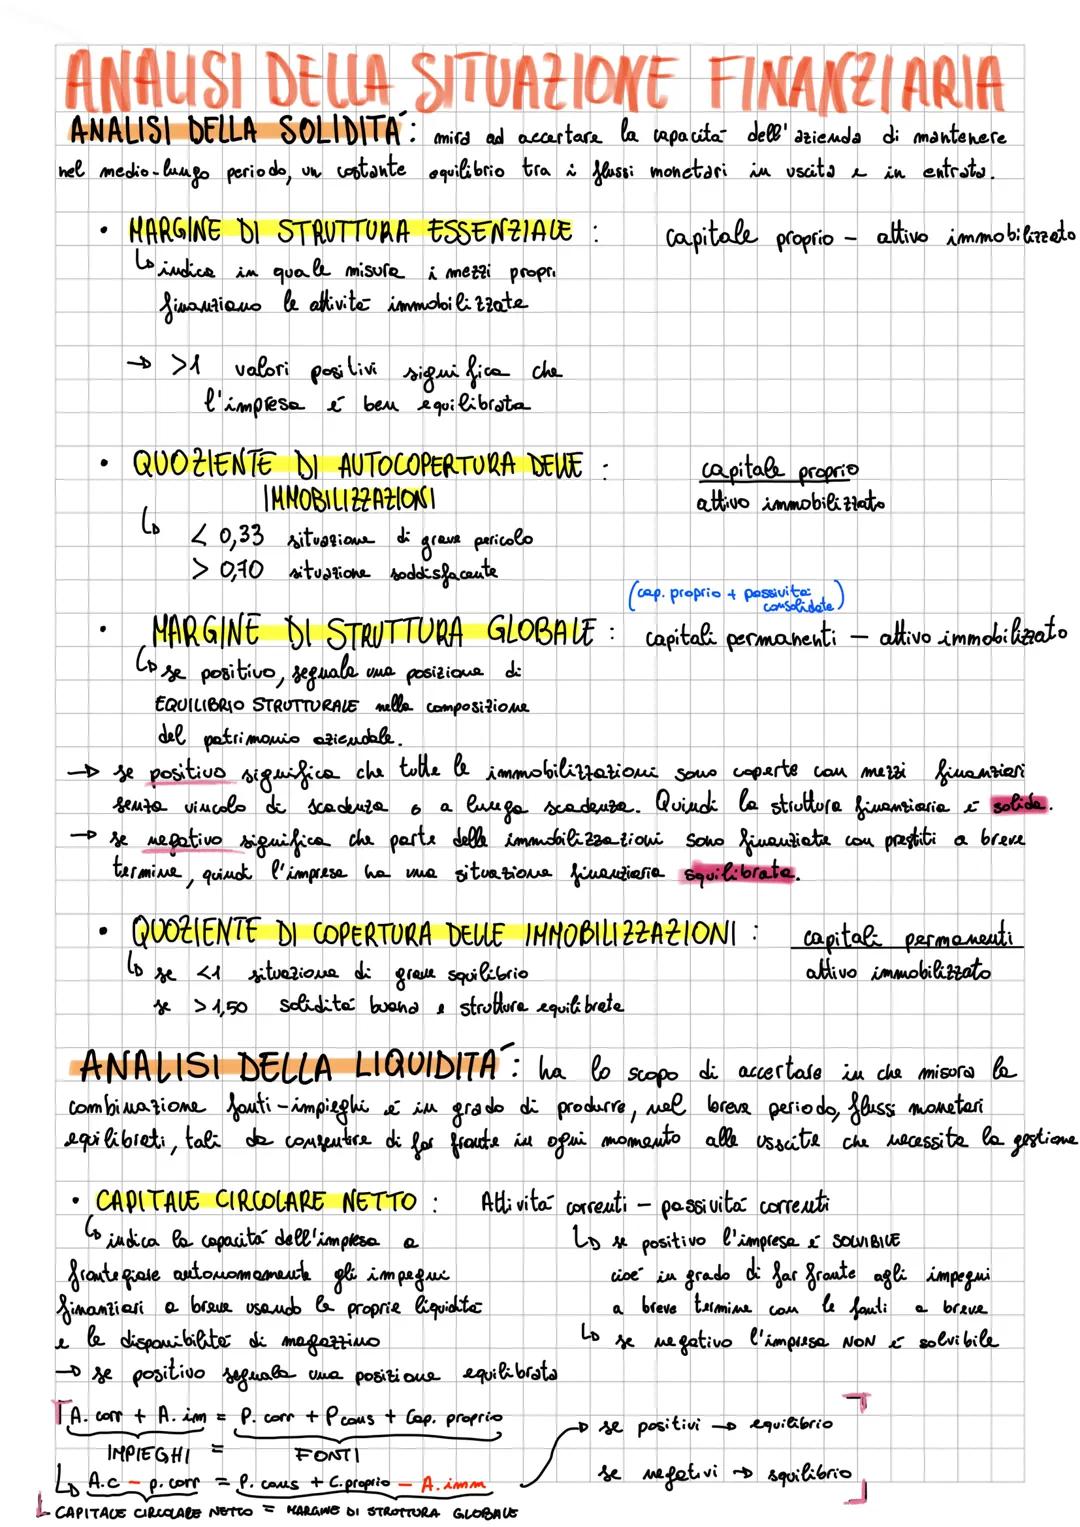 ANALISI DELLA SITUAZIONE FINANZIARIA
ANALISI DELLA SOLIDITÀ: mira ad accertare la capacità dell'azienda di mantenere
nel medio-lungo periodo, un costante equilibrio tra i flussi monetari in uscita e in entrata.
• MARGINE DI STRUTTURA ESSENZIALE : capitale proprio – attivo immobilizzato
↳ indica in quale misura i mezzi propri
finanziano le attività immobilizzate
→ >1 valori positivi significa che
l'impresa é ben equilibrata
• QUOZIENTE DI AUTOCOPERTURA DELLE : capitale proprio
IMMOBILIZZAZIONI attivo immobilizzato
↳ < 0,33 situazione di grave pericolo
> 0,70 situazione soddisfacente
(cap. proprio + passività
consolidate)
• MARGINE DI STRUTTURA GLOBALE : capitali permanenti – attivo immobilizzato
↳ se positivo, segnala una posizione di
EQUILIBRIO STRUTTURALE nella composizione
del patrimonio aziendale.
→ se positivo significa che tutte le immobilizzazioni sono coperte con mezzi finanziari
senza vincolo di scadenza o a lunga scadenza. Quindi la struttura finanziaria é solida.
→ se negativo significa che parte delle immobilizzazioni sono finanziate con prestiti a breve
termine, quindi l'impresa ha una situazione finanziaria squilibrata.
• QUOZIENTE DI COPERTURA DELLE IMMOBILIZZAZIONI : capitali permanenti
↳ se <1 situazione di grave squilibrio attivo immobilizzato
se >1,50 solidità buona e struttura equilibrata
ANALISI DELLA LIQUIDITÀ: ha lo scopo di accertare in che misura la
combinazione fonti-impieghi é in grado di produrre, nel breve periodo, flussi monetari
equilibrati, tali da consentire di far fronte in ogni momento alle usscite che necessita la gestione
• CAPITALE CIRCOLARE NETTO : Attività correnti – passività correnti
↳ indica la capacità dell'impresa a ↳ se positivo l'impresa é SOLVIBILE
frontegiare autonomamente gli impegni cioé in grado di far fronte agli impegni
finanziari a breve usando le proprie liquidità a breve termine con le fonti a breve
e le disponibilità di magazzino ↳ se negativo l'impresa NON é solvibile
→ se positivo segnala una posizione equilibrata
A. corr + A. im = P. corr + P cons + Cap. proprio → se positivi → equilibrio
IMPIEGHI = FONTI
↳ A.c – p. corr = P. cons + C.proprio – A. imm se negativi → squilibrio
CAPITALE CIRCOLARE NETTO = MARGINE DI STRUTTURA GLOBALE